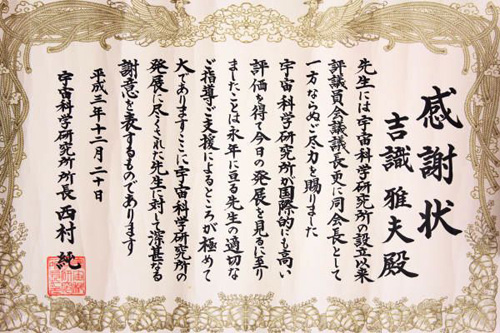 感謝状
吉識雅夫殿
先生には宇宙科学研究所の設立以来
評議員会議議長更に同会長として
一方ならぬご尽力を賜りました
宇宙科学研究所が国際的にも高い
評価を得て今日の発展を見るに至り
ましたことは永年に亘る先生の適切な
ご指導ご支援によるところが極めて
大でありますここに宇宙科学研究所の
発展に尽くされた先生に対して深甚なる
謝意を表するものであります
平成三年十二月二十日
宇宙科学研究所所長 西村 純